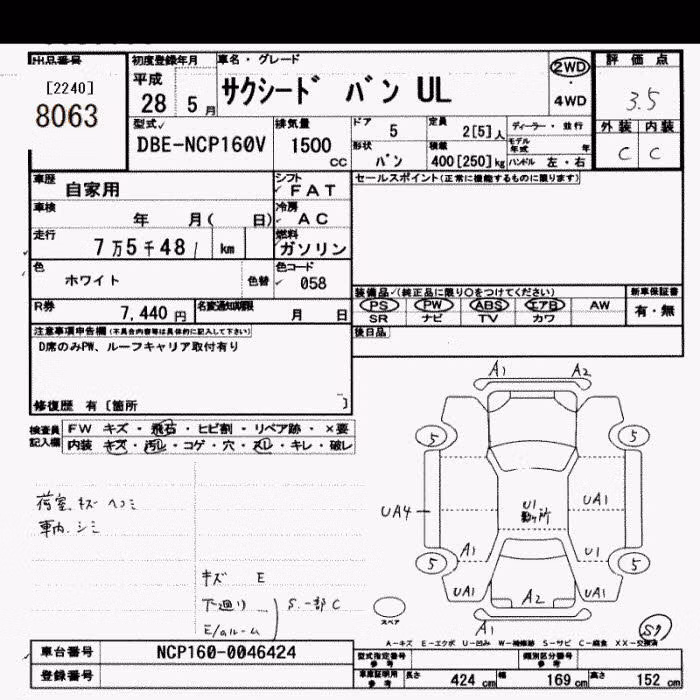 出品番号
[2240]
8063
初度登録年月
平成
28 5 月
車名・グレード
サクシード バン UL
2WD
・
4WD
評価点
3.5
外装 内装
C C
型式✓
DBE-NCP160V
排気量
1500
CC
ドア 5
定員 2[5]人
ディーラー・並行
モデル年式 年
形状 バン
積載 400[250]kg
ハンドル 左・右
車歴 自家用
シフト
✓ FAT
車検 年 月( 日)
冷房
✓ AC
走行 7万5千481 km
燃料
ガソリン
色 ホワイト 色替
色コード
✓ 058
R券 7,440 円
名変通知期限 月 日
セールスポイント(正常に機能するものに限ります)
装備品✓(純正品に限り○をつけてください)
新車保証書
PS PW ABS エアB AW
有・無
SR ナビ TV カワ
後日品
注意事項申告欄(不具合内容等は具体的に記入して下さい)
D席のみPW、ルーフキャリア取付有り
修復歴 有〔箇所 〕
検査員記入欄
FW キズ・飛石・ヒビ割・リペア跡・×要
内装 キズ・汚レ・コゲ・穴・スレ・キレ・破レ
荷室.キズ ヘコミ
車内.シミ
キズ E
下廻り
E/gルーム
S.一部C
A1 A2
5 5
UA4
U1
UA1
A1 U1
5 5
UA1 A2 UA1
A1
スペア
A-キズ E-エクボ U-凹み W-補修跡 S-サビ C-腐食 XX-交換済
車台番号 NCP160-0046424
登録番号
型式指定番号
参考
類別区分番号
参考
車庫証明用
参考
長さ 424 cm
幅 169 cm
高さ 152 cm